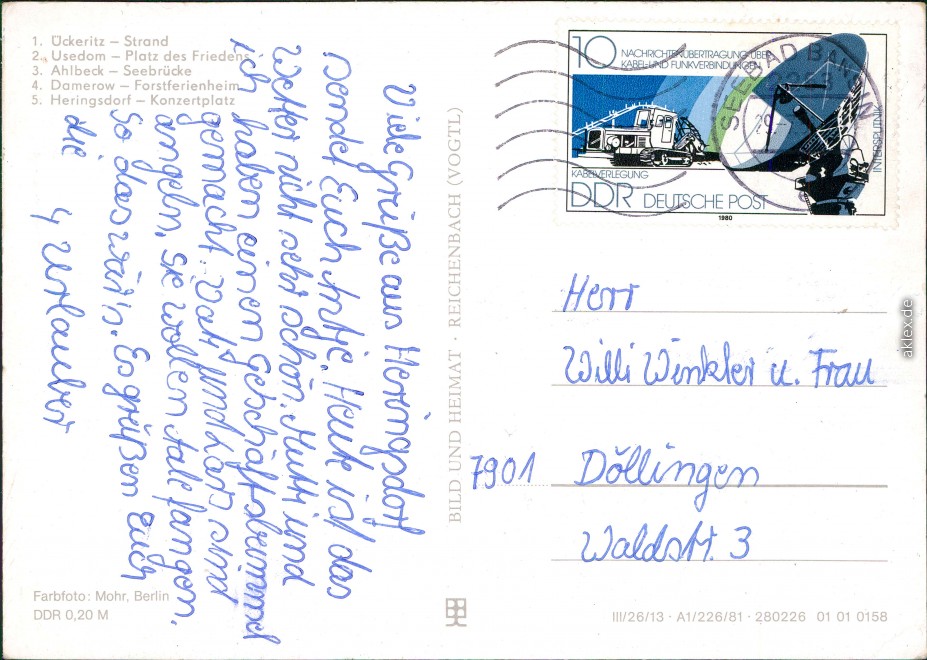 1. Ückeritz – Strand
2. Usedom – Platz des Friedens
3. Ahlbeck – Seebrücke
4. Damerow – Forstferienheim
5. Heringsdorf – Konzertplatz
Viele Grüße aus Heringsdorf
sendet Euch Antje. Heute ist das
Wetter nicht sehr schön. Mutti und
ich haben einen Geschäftsbummel
gemacht. Vati und sind
angeln, sie wollen Aale fangen.
So das wär's. Es grüßen Euch
die
4 Urlauber
Farbfoto: Mohr, Berlin
DDR 0,20 M
BILD UND HEIMAT · REICHENBACH (VOGTL)
10
NACHRICHTENÜBERTRAGUNG ÜBER
KABEL- UND FUNKVERBINDUNGEN
KABELVERLEGUNG
DDR DEUTSCHE POST
INTERSPUTNIK
1980
SEEBAD
Herr
Willi Winkler u. Frau
7901 Döllingen
Waldstr. 3
III/26/13 · A1/226/81 · 280226 01 01 0158
aklex.de